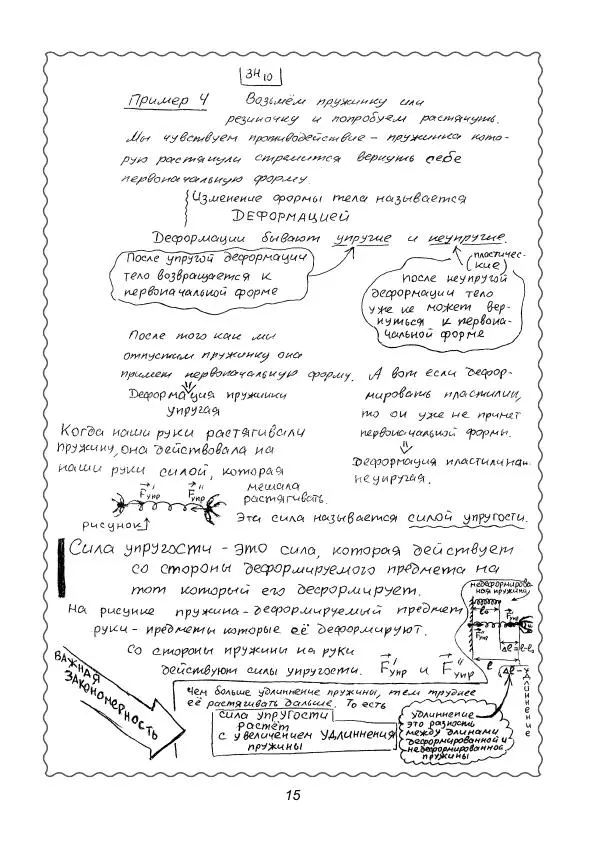 ЗН10
Пример 4 Возьмём пружинку или
резиночку и попробуем растянуть.
Мы чувствуем противодействие - пружинка кото-
рую растянули стремится вернуть себе
первоначальную форму
Изменение формы тела называется
ДЕФОРМАЦИЕЙ
Деформации бывают упругие и неупругие.
(пластичес-
кие)
После упругой деформации
тело возвращается к
первоначальной форме
После неупругой
деформации тело
уже не может вер-
нуться к первона-
чальной форме
После того как мы
отпустим пружинку она
примет первоначальную форму.
Деформация пружинки
упругая
А вот если дефор-
мировать пластилин,
то он уже не примет
первоначальной формы.
Деформация пластилина-
неупругая.
Когда наши руки растягивали
пружину, она действовала на
наши руки силой, которая
мешала
растягивать.
F'упр F''упр
рисунок↑
Эта сила называется силой упругости.
Сила упругости - это сила, которая действует
со стороны деформируемого предмета на
тот который его деформирует.
На рисунке пружина-деформируемый предмет
руки-предметы которые её деформируют.
Со стороны пружины на руки
действуют силы упругости. F'упр и F''упр
недеформирова
ная пружина
l₀
Fупр
Δl=l-l₀
l
Δl-удлиннение
ВАЖНАЯ
ЗАКОНОМЕРНОСТЬ
Чем больше удлиннение пружины, тем труднее
её растягивать дальше. То есть
сила упругости
растёт
с увеличением удлиннения
пружины
удлиннение
это разность
между длинами
деформированной и
недеформированной
пружины
15